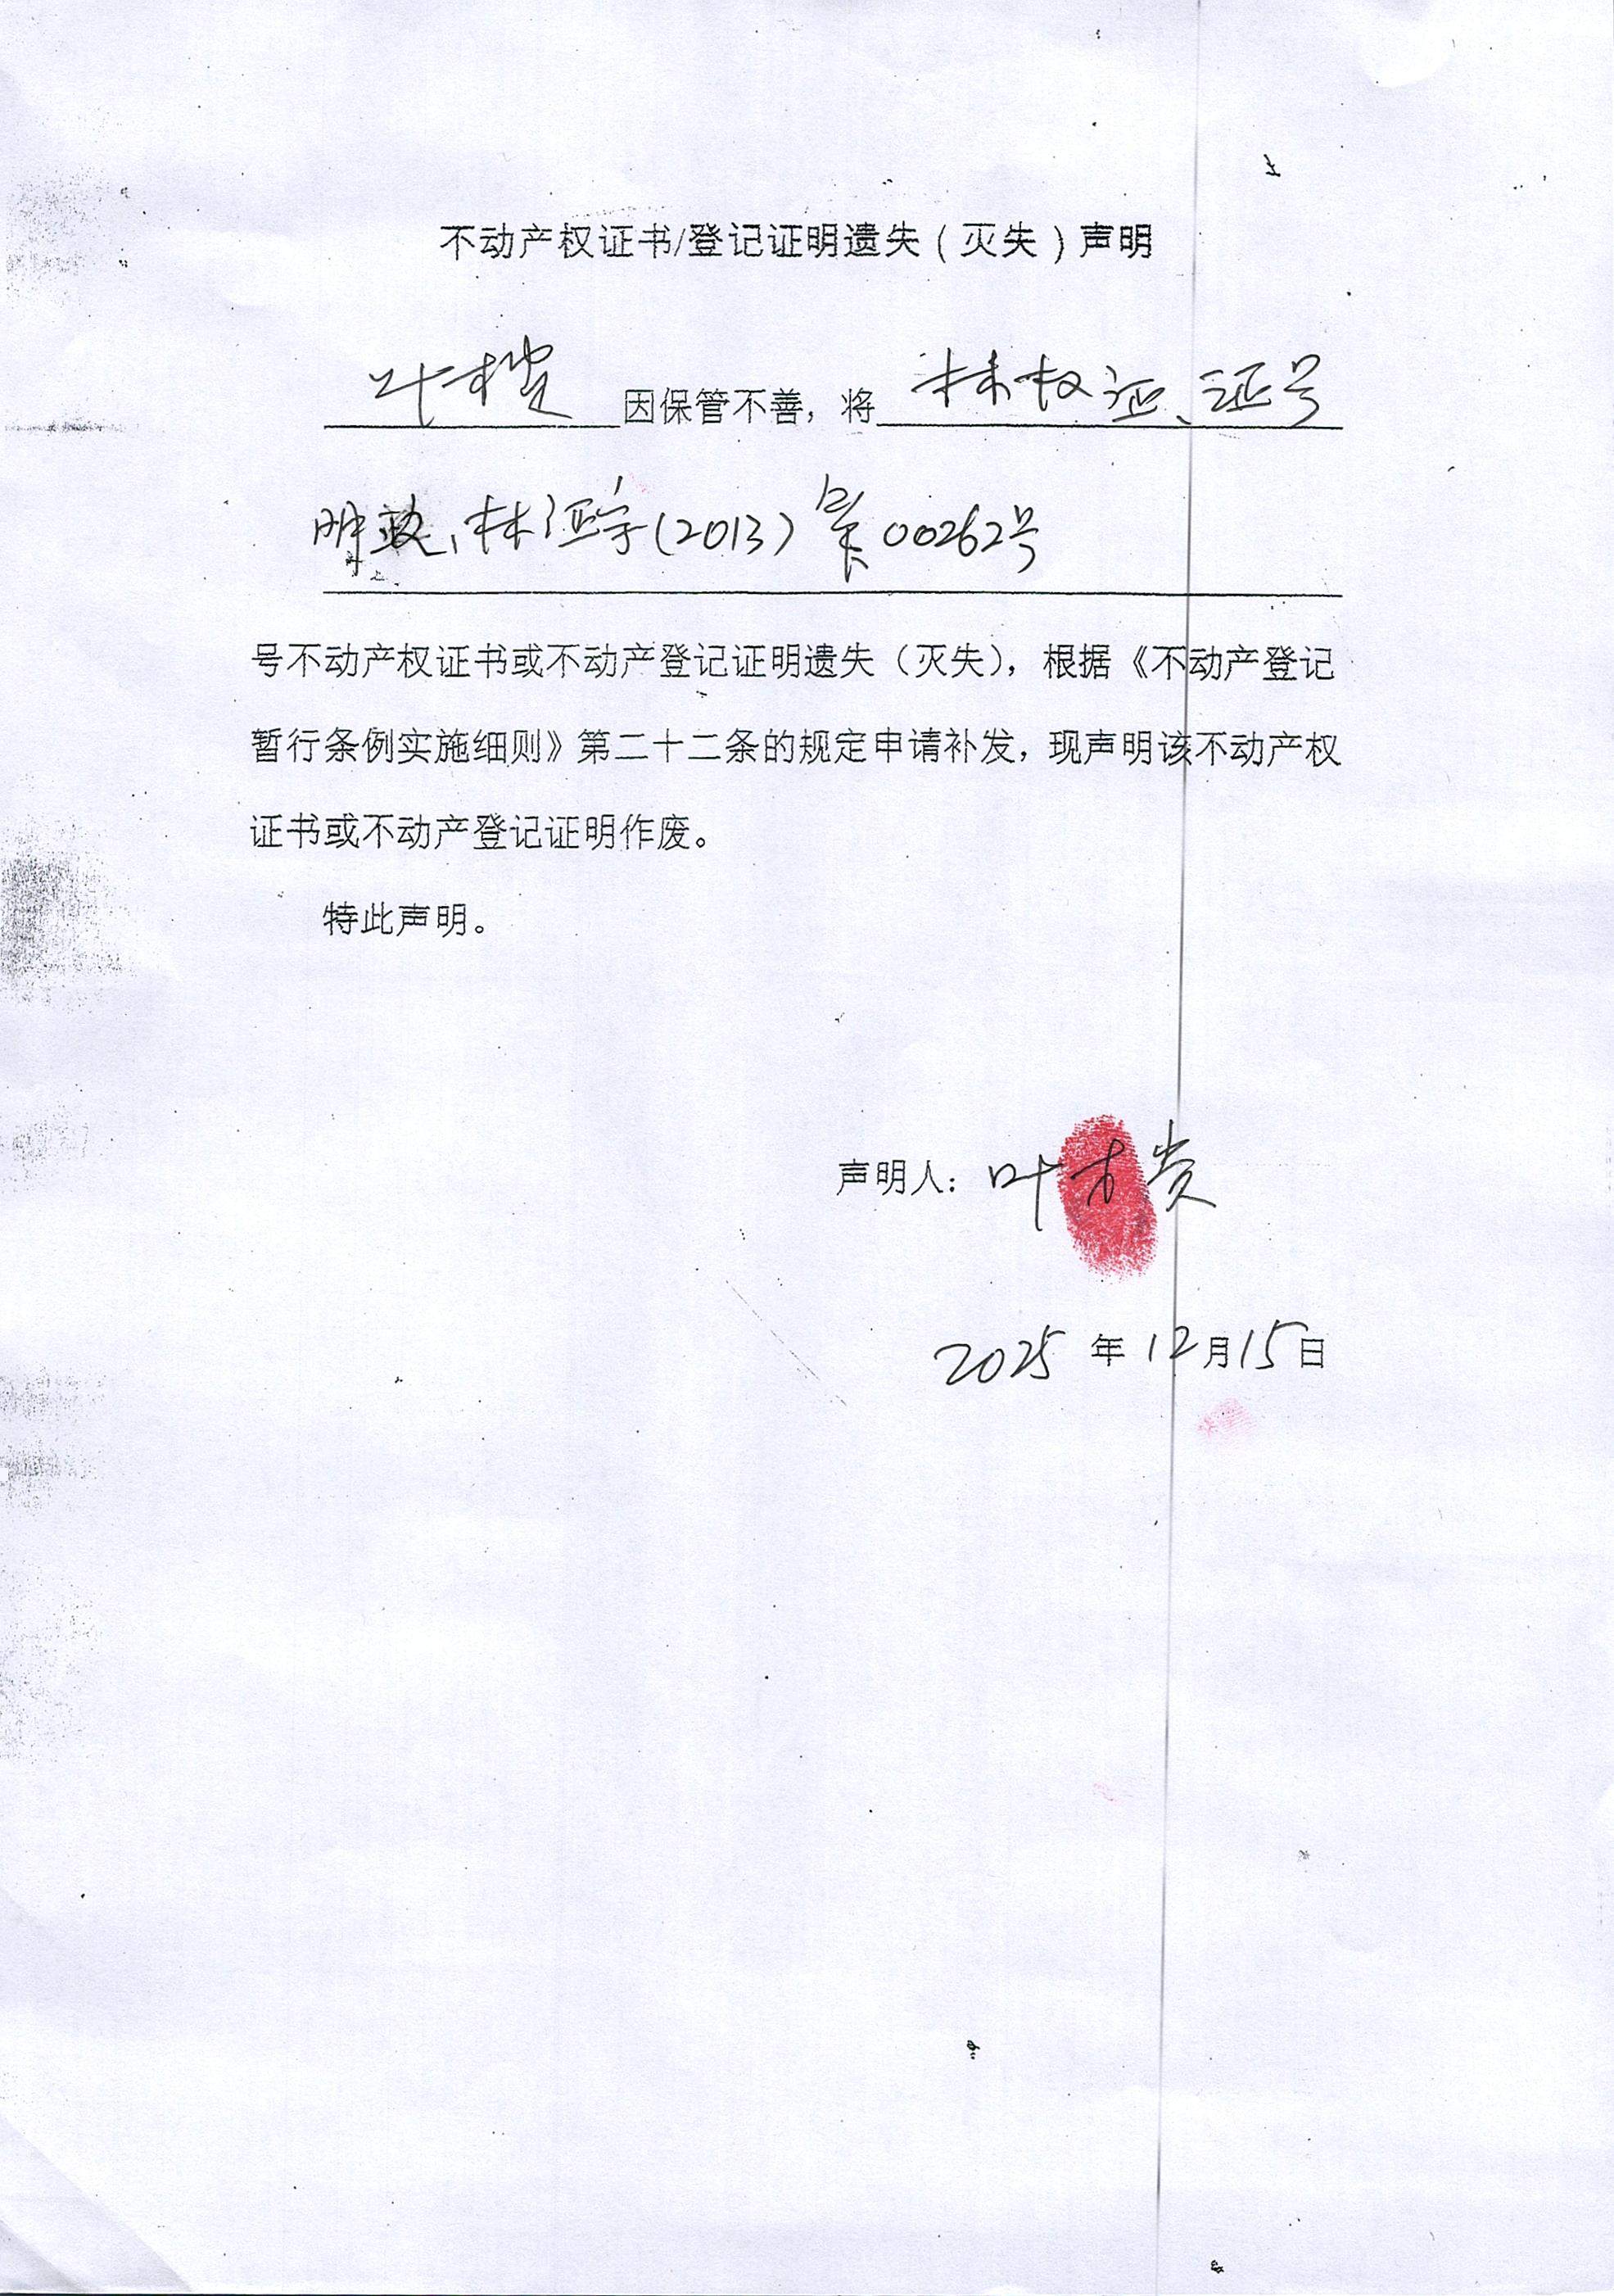 不动产权证书/登记证明遗失（灭失）声明
叶才贵因保管不善，将林权证、证号
明政、林证字(2013)第00262号
号不动产权证书或不动产登记证明遗失（灭失），根据《不动产登记
暂行条例实施细则》第二十二条的规定申请补发，现声明该不动产权
证书或不动产登记证明作废。
特此声明。
声明人：叶才贵
2025年12月15日